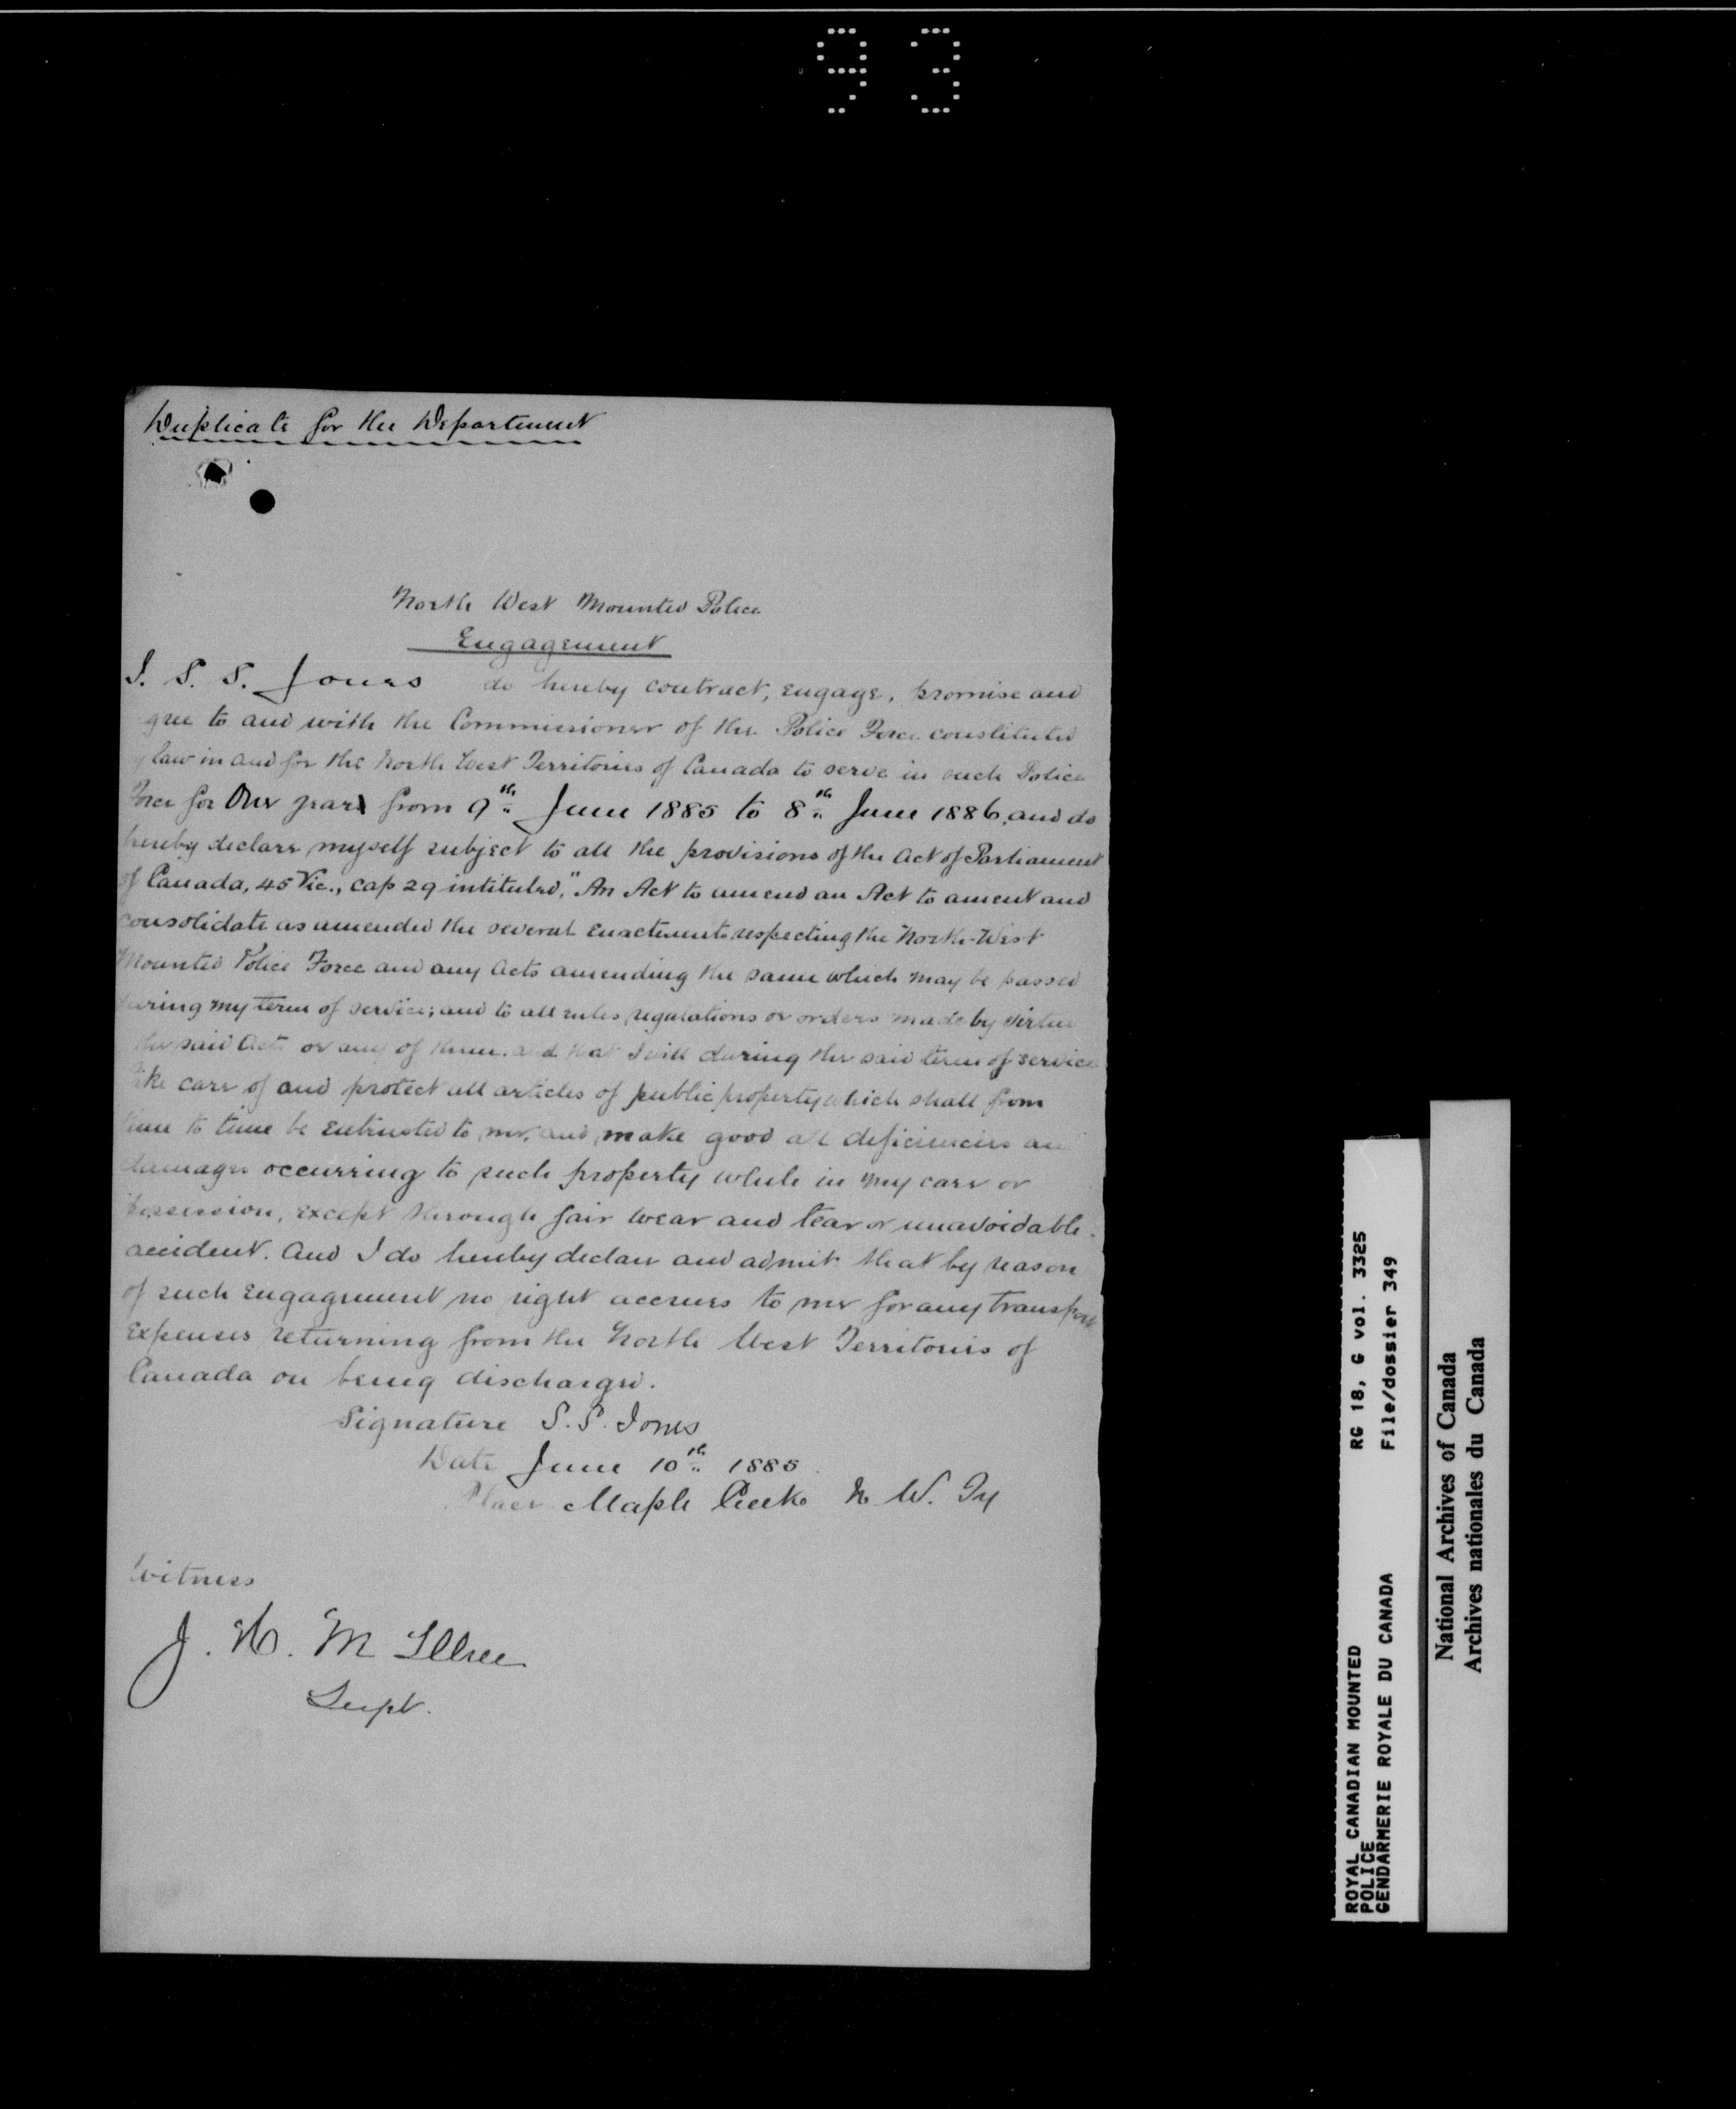 93
Duplicate for the Department
North West Mounted Police
Engagement
I. S. S. Jones do hereby contract, engage, promise and
gree to and with the Commissioner of the Police Force constituted
y law in and for the North West Territories of Canada to serve in such Police
Force for One year from 9th June 1885 to 8th June 1886, and do
hereby declare myself subject to all the provisions of the Act of Parliament
of Canada, 45 Vic., cap 29 intituled, "An Act to amend an Act to ament and
consolidate as amended the several Enactments respecting the North-West
Mounted Police Force and any Acts amending the same which may be passed
during my term of service; and to all rules, regulations or orders made by virtue
the said Acts or any of them, and that I will during the said term of service
take care of and protect all articles of public property which shall from
time to time be entrusted to me, and make good all deficiencies and
damages occurring to such property while in my care or
possession, except through fair wear and tear or unavoidable
accident. And I do hereby declare and admit that by reason
of such Engagement no right accrues to me for any transport
Expenses returning from the North West Territories of
Canada on being discharged.
Signature S. S. Jones
Date June 10th 1885
Place Maple Creek N. W. Ty
Witness
J. H. McIllree
Supt.
ROYAL CANADIAN MOUNTED RG 18, G vol. 3325
POLICE
GENDARMERIE ROYALE DU CANADA File/dossier 349
National Archives of Canada
Archives nationales du Canada